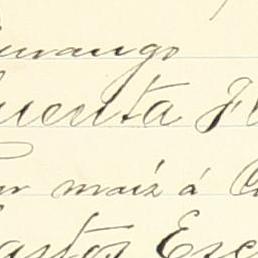 Durango
Cuenta F
maíz á
Gastos Esc